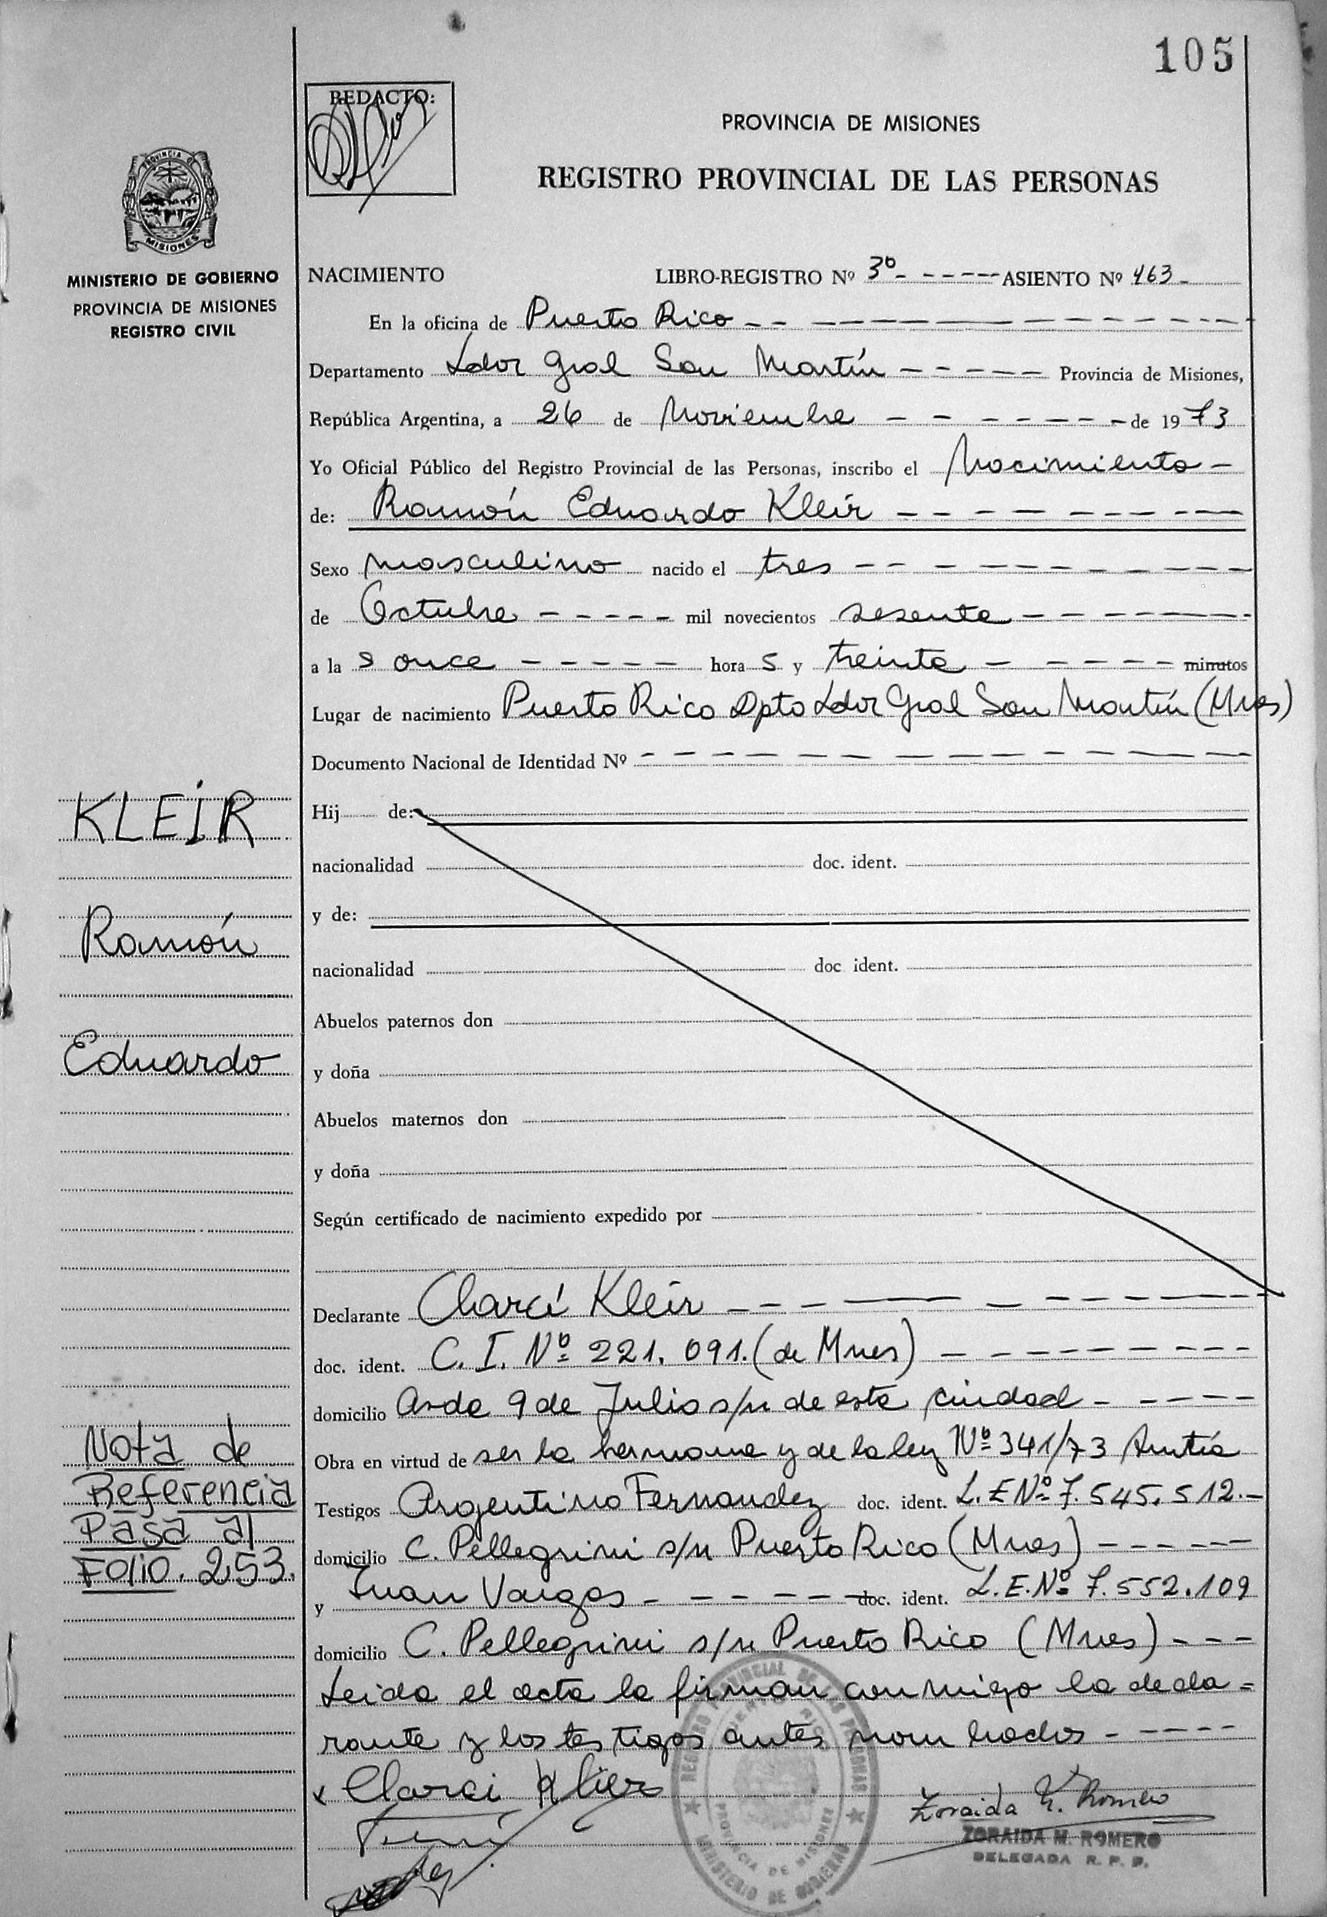 105
REDACTO:
PROVINCIA DE MISIONES
REGISTRO PROVINCIAL DE LAS PERSONAS
PROVINCIA DE
MISIONES
MINISTERIO DE GOBIERNO
PROVINCIA DE MISIONES
REGISTRO CIVIL
NACIMIENTO LIBRO-REGISTRO Nº 3º - - - - - - ASIENTO Nº 463 -
En la oficina de Puerto Rico - - - - - - - -
Departamento Ldor Gral San Martín - - - - - Provincia de Misiones,
República Argentina, a 26 de Noviembre - - - - - - - de 1973
Yo Oficial Público del Registro Provincial de las Personas, inscribo el Nacimiento -
de: Ramón Eduardo Kleir - - - - - - - - -
Sexo masculino nacido el tres - - - - - - - - -
de Octubre - - - - - mil novecientos sesenta - - - - -
a la s once - - - - - hora s y treinta - - - - - minutos
Lugar de nacimiento Puerto Rico Dpto Ldor Gral San Martín (Mnes)
Documento Nacional de Identidad Nº - - - - - - - - - -
Hij de:
nacionalidad doc. ident.
y de:
nacionalidad doc ident.
Abuelos paternos don
y doña
Abuelos maternos don
y doña
Según certificado de nacimiento expedido por
Declarante Clarcí Kleir - - - - - - - - - -
doc. ident. C. I. Nº 221.091. (de Mnes) - - - - - - - -
domicilio Avda 9 de Julio s/n de esta ciudad - - - - -
Obra en virtud de ser la hermana y de la ley Nº 341/73
Testigos Argentino Fernandez doc. ident. L.E Nº 7.545.512. -
domicilio C. Pellegrini s/n Puerto Rico (Mnes) - - - - -
y Juan Vargas - - - - - doc. ident. L.E. Nº 7.552.109
domicilio C. Pellegrini s/n Puerto Rico (Mnes) - - -
Leida el acta la firman conmigo la decla=
rante y los testigos antes nombrados - - - - -
x Clarci
Zoraida M. Romero
ZORAIDA M. ROMERO
DELEGADA R. P. P.
REGISTRO PROVINCIAL DE LAS PERSONAS
PUERTO RICO
PROVINCIA DE MISIONES
MINISTERIO DE GOBIERNO
KLEIR
Ramón
Eduardo
Nota de
Referencia
Pasa al
Folio. 253.